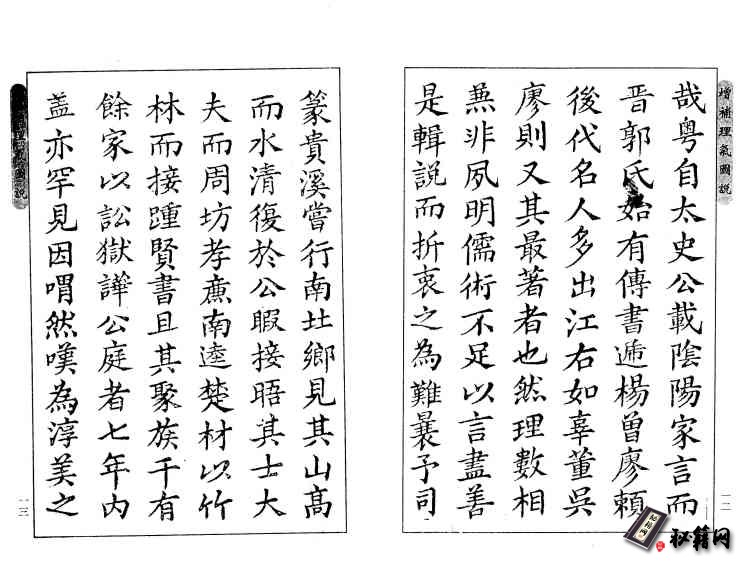 增補理氣圖說
哉粤自太史公載陰陽家言而
晋郭氏始有傳書遞楊曾廖賴
後代名人多出江右如辜董吳
廖則又其最著者也然理數相
蕉非夙明儒術不足以言盡善
是輯說而折衷之為難曩予司
一二
篆貴溪嘗行南北鄉見其山高
而水清復於公暇接晤其士大
夫而周坊孝廉南逵楚材以竹
林而接踵賢書且其聚族千有
餘家以訟獄譁公庭者七年内
盖亦罕見因喟然嘆為淳美之
一三
秘籍网